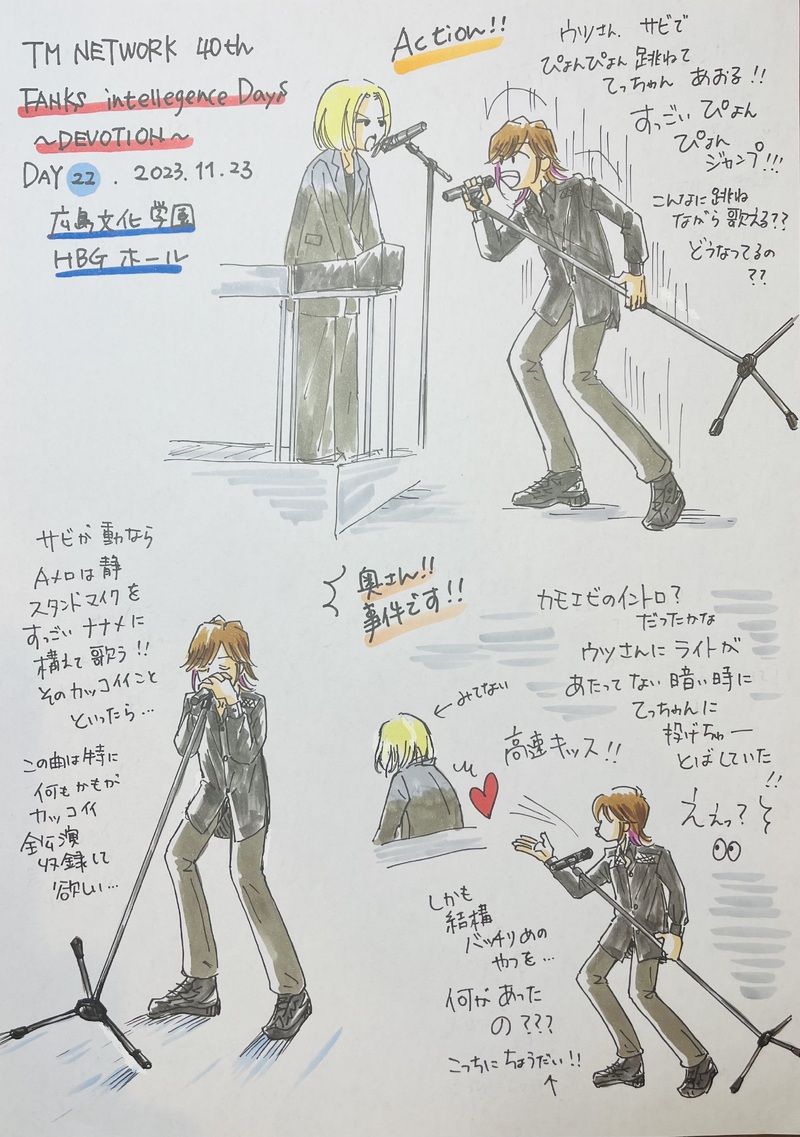 TM NETWORK 40th
FANKS intellegence Days
～DEVOTION～
DAY 22. 2023.11.23
広島文化学園
HBG ホール
Action!!
ウツさん サビで
ぴょんぴょん 跳ねて
てっちゃん あおる!!
すっごい ぴょん
ぴょん
ジャンプ!!!
こんなに 跳ね
ながら 歌える??
どうなってるの
??
サビが 動なら
Aメロは 静
スタンドマイクを
すっごい ナナメに
構えて 歌う!!
そのカッコイイこと
といったら…
この曲は 特に
何もかもが
カッコイイ
全公演
収録して
欲しい…
奥さん!!
事件です!!
カモエビのイントロ?
だったかな
ウツさんに ライトが
あたって ない 暗い 時に
てっちゃんに
投げちゅー
とばしていた
!!
←みてない
高速キッス!!
ええっ?
しかも
結構
バッチリめの
やつを…
何が あった
の???
こっちに ちょうだい!!
↑